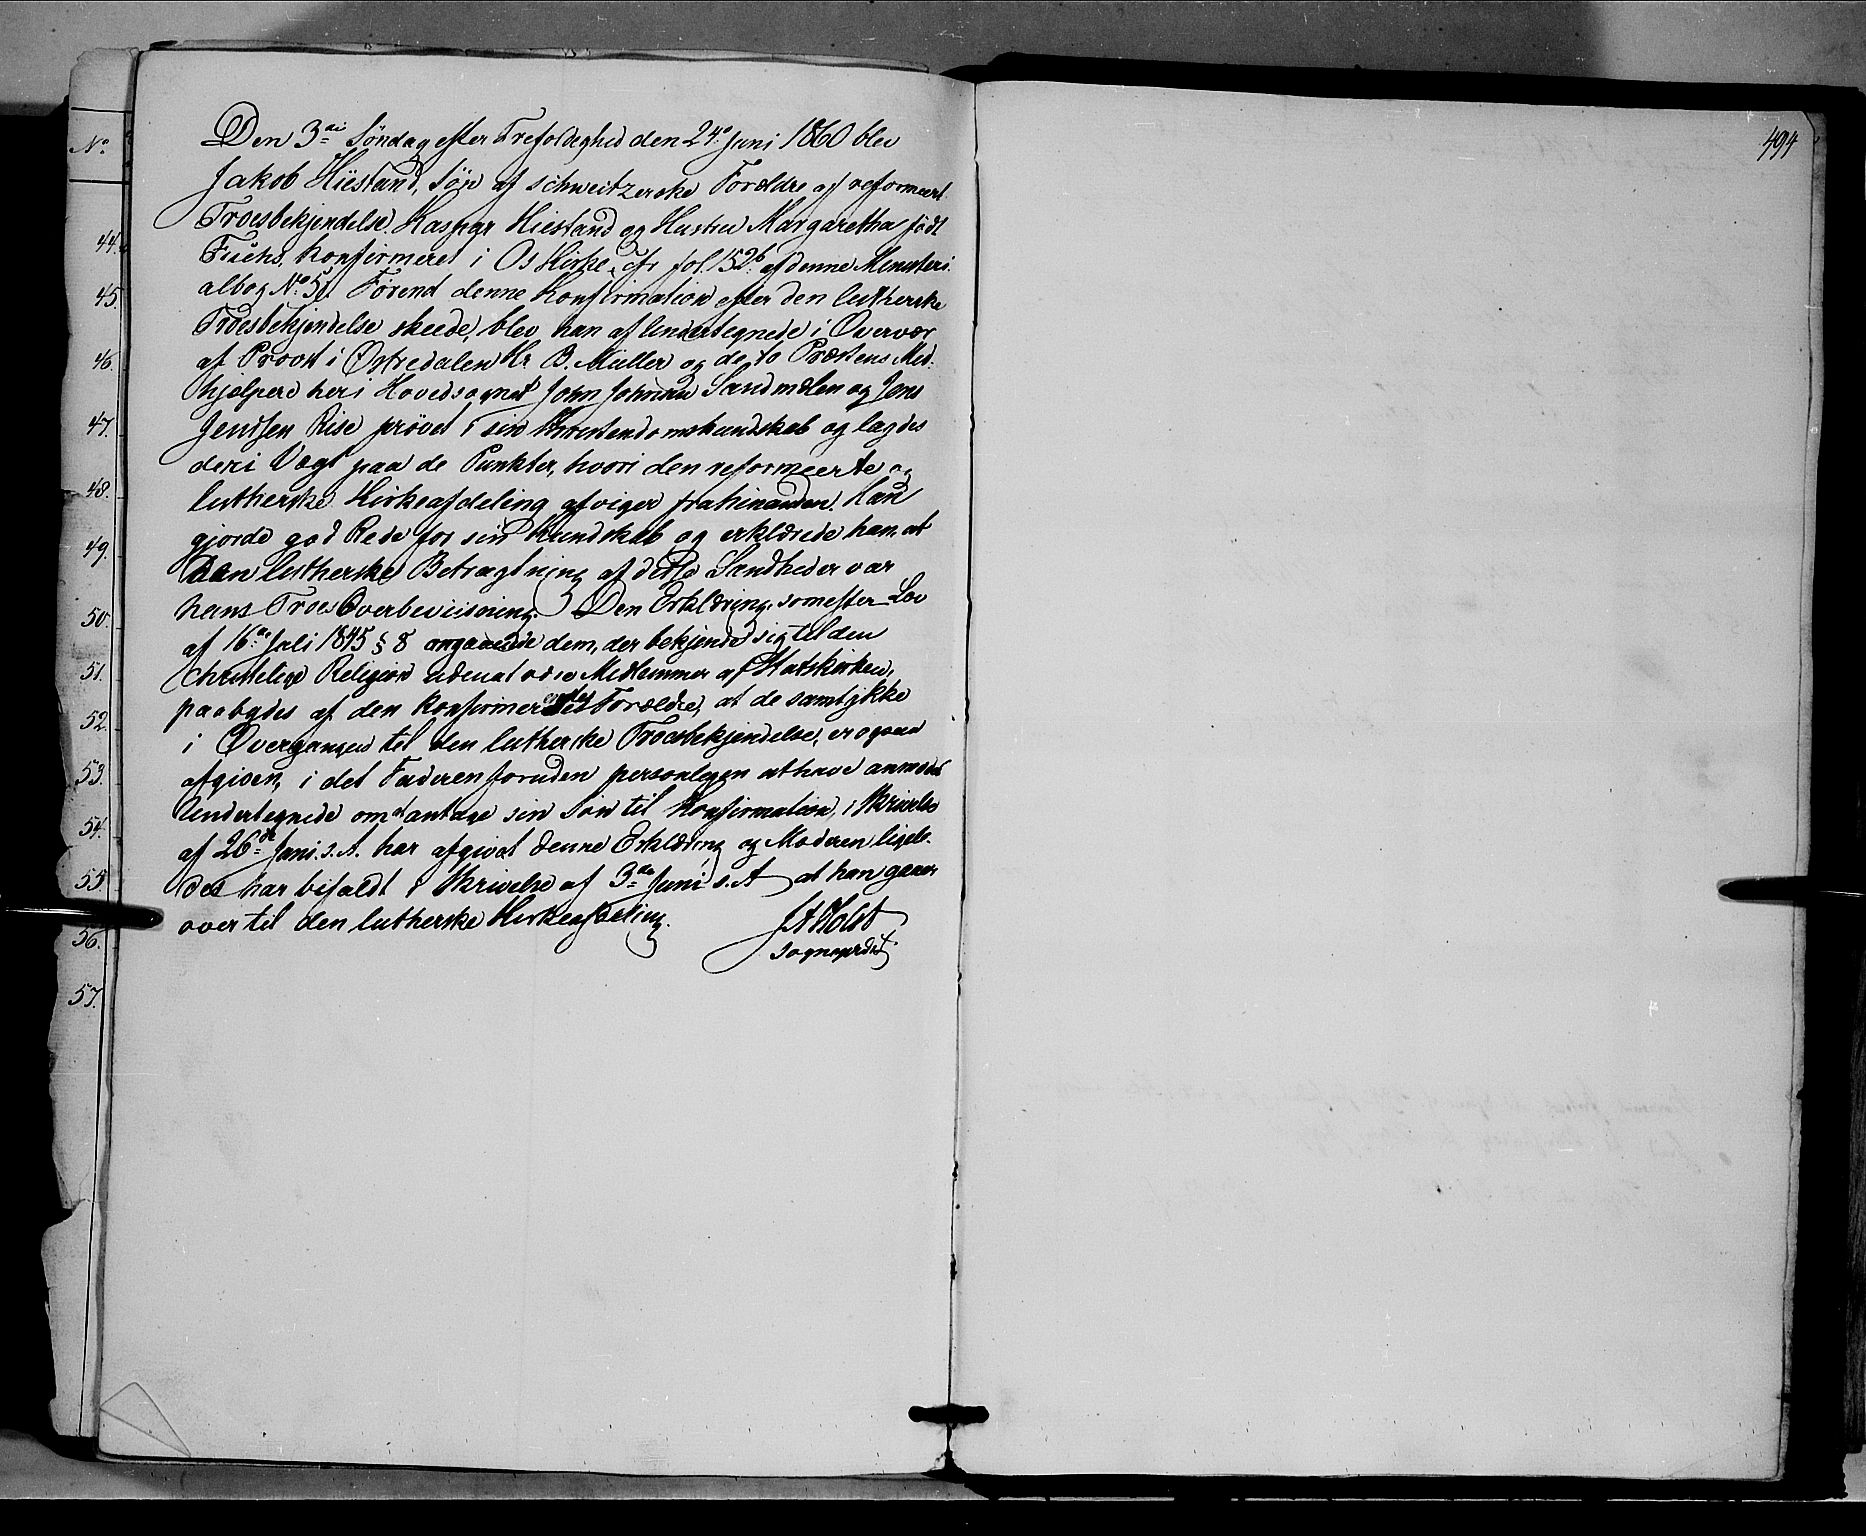 No
44.
45.
46.
47.
48.
49.
50.
51.
52.
53.
54.
55.
56.
57.
Den 3die Søndag efter Trefoldighed den 24de Juni 1860 blev
Jakob Hiestand, Søn af schweitzerske Forældre af reformeert
Troesbekjendelse Kaspar Hiestand og Hustru Margaretha født
Fuchs, konfirmeret i Os Kirke, cfr fol. 152b af denne Ministeri-
albog No 5. Førend denne Konfirmation efter den lutherske
Troesbekjendelse skeede, blev han af Undertegnede i Overvær
af Provst i Østredalen Hr. B. Müller og de to Præstens Med-
hjælpere her i Hovedsognet John Johnsen Sandmælen og Jens
Jensen Rise prøvet i sin Christendomskundskab og lagdes
deri Vægt paa de Punkter, hvori den reformeerte og
lutherske Kirkeafdeling afviger fra hinanden. Han
gjorde god Rede for sin Kundskab og erklærede han, at
den lutherske Betragtning af disse Sandheder var
hans Troes Overbeviisning. Den Erklæring, som efter Lov
af 16de Juli 1845 § 8 angaaende dem, der bekjende sig til den
christelige Religion uden at være Medlemmer af Statskirken,
paabydes af den konfirmerendes Forældre, at de samtykke
i Overgangen til den lutherske Troesbekjendelse, er ogsaa
afgiven, i det Faderen foruden personligen at have anmodet
Undertegnede om at antage sin Søn til Konfirmation, i Skrivelse
af 26de Juni s. A. har afgivet denne Erklæring og Moderen ligele-
des har bifaldt i Skrivelse af 3die Juni s. A at han gaaer
over til den lutherske Kirkeafdeling.
J A Holst
Sognepræst
494